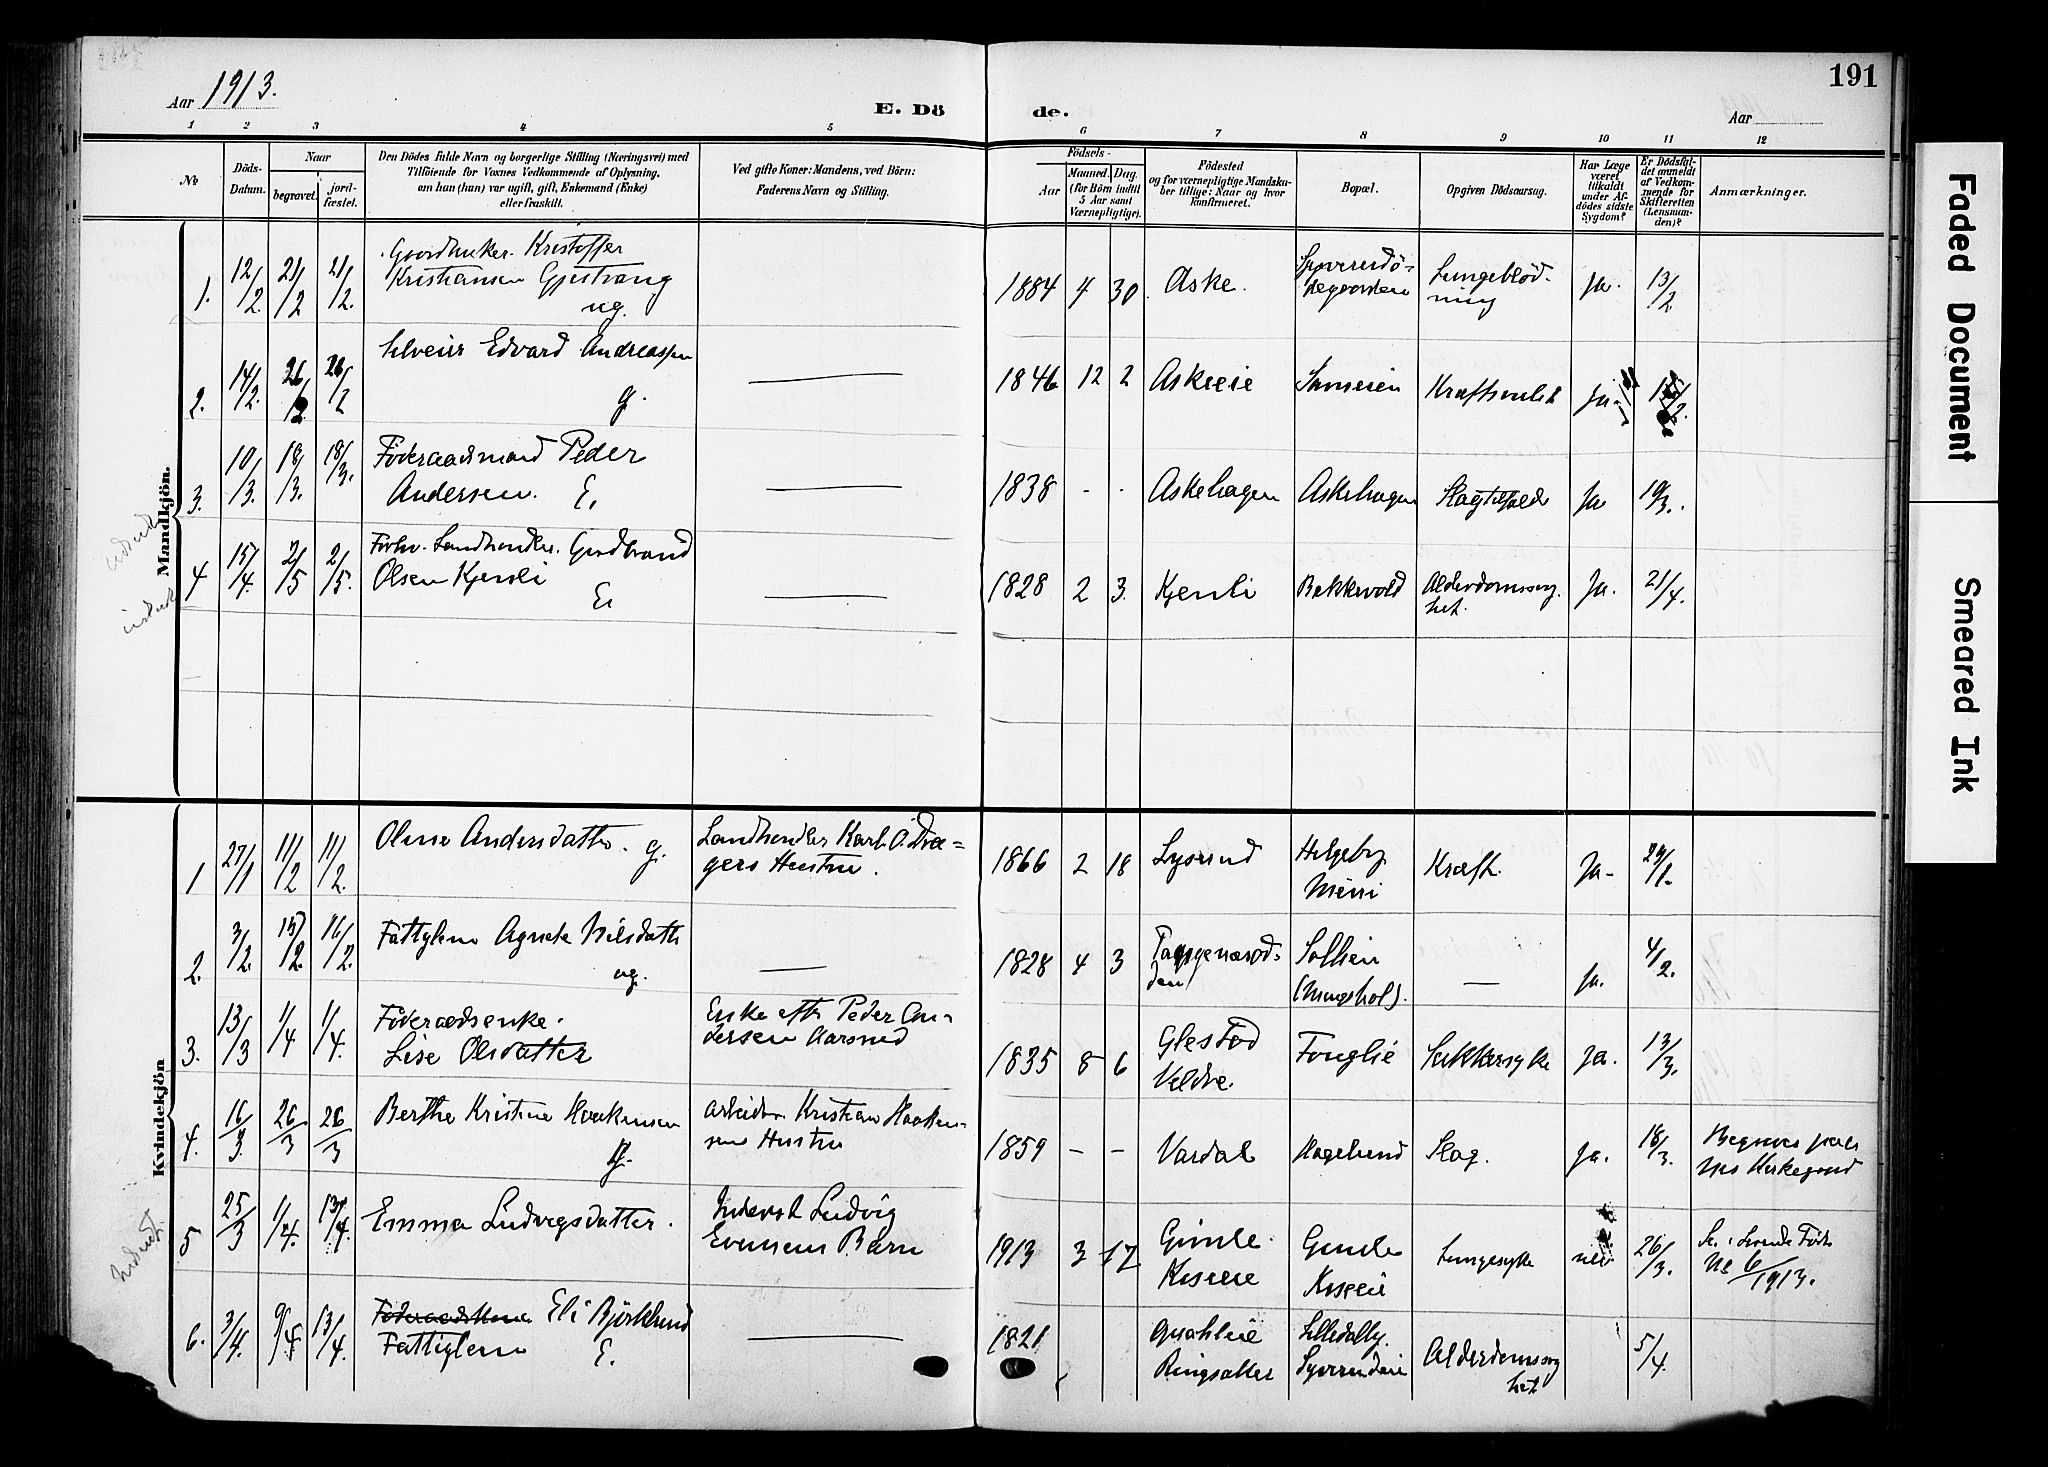 191
Aar 1913.
E. Dö de.
Aar
1 2 3 4 5 6 7 8 9 10 11 12
No
Döds-Datum.
Naar
begravet.
jord-fæstet.
Den Dödes fulde Navn og borgerlige Stilling (Næringsvei) med
Tilföiende for Voxnes Vedkommende af Oplysning,
om han (hun) var ugift, gift, Enkemand (Enke)
eller fraskilt.
Ved gifte Koner: Mandens, ved Börn:
Faderens Navn og Stilling.
Födsels-
Aar
Maaned. Dag.
(for Börn indtil
5 Aar samt
Værnepligtige).
Födested
og for værnepligtige Mandska-
ber tillige: Naar og hvor
konfirmeret.
Bopæl.
Opgiven Dödsaarsag.
Har Læge
været
tilkaldt
under Af-
dödes sidste
Sygdom?
Er Dödsfal-
det anmeldt
af Vedkom-
mende for
Skifteretten
(Lensman-
den)?
Anmærkninger.
Mandkjön.
1. 12/2 21/2 21/2. Kristoffer
Kristiansen Gjestvang
ug.
1884 4 30 Aske. Lungeblöd-
ning Ja. 13/2
2. 14/2. 26/2 26/2 Selveier Edvard Andreassen
g. —
1846 12 2 Askeeie Kræftsvulst Ja-
3. 10/3. 18/3. 18/3. Föderaadsmand Peder
Andersen. E. —
1838 - - Askehagen Askehagen Slagtilfælde Ja 19/3.
4 15/4. 2/5 2/5. Forhv. Landhandler. Gudbrand
Olsen Kjensli
E. —
1828 2 3. Kjensli Bekkevold Alderdomssvag-
het. Ja. 21/4.
Kvindekjön
1 27/1 11/2 11/2. Oline Andersdatter. g. Landhandler Karl
Hustru.
1866 2 18 Lysrud Helgeby
Kræft. Ja-
2. 3/2. 15/2. 16/2. Fattiglem Agnete Nilsdatter
ug. —
1828 4 3 Sollien
— Ja. 4/2.
3. 13/3 1/4 1/4. Föderaadsenke.
Lise Olsdatter
Enke eft. Peder An-
dersen Aarsrud
1835 8 6 Glestad
Veldre. Fonglie Sukkersyke Ja. 13/3.
4. 16/3. 26/3 26/3 Berthe Kristine Haakensen
g.
Arbeider Kristian Haaken-
sens Hustru
1859 - - Vardal Hagelund Slag. Ja. 18/3. Begravet paa
Nes Kirkegaard
5 25/3 1/4. 13/4. Emma Ludvigsdatter. Ludvig
Evensens Barn
1913 3 17 Gimle.
Kiseeie Gimle
Kiseeie Lungesyke nei 26/3. Se: Levende Födte
No 6/1913.
6. 3/4. 9/4. 13/4. Eli Björklund
Fattiglem E. —
1821
Ringsaker Lilledalby.
Alderdomssvag
het 5/4.
Faded Document
Smeared Ink